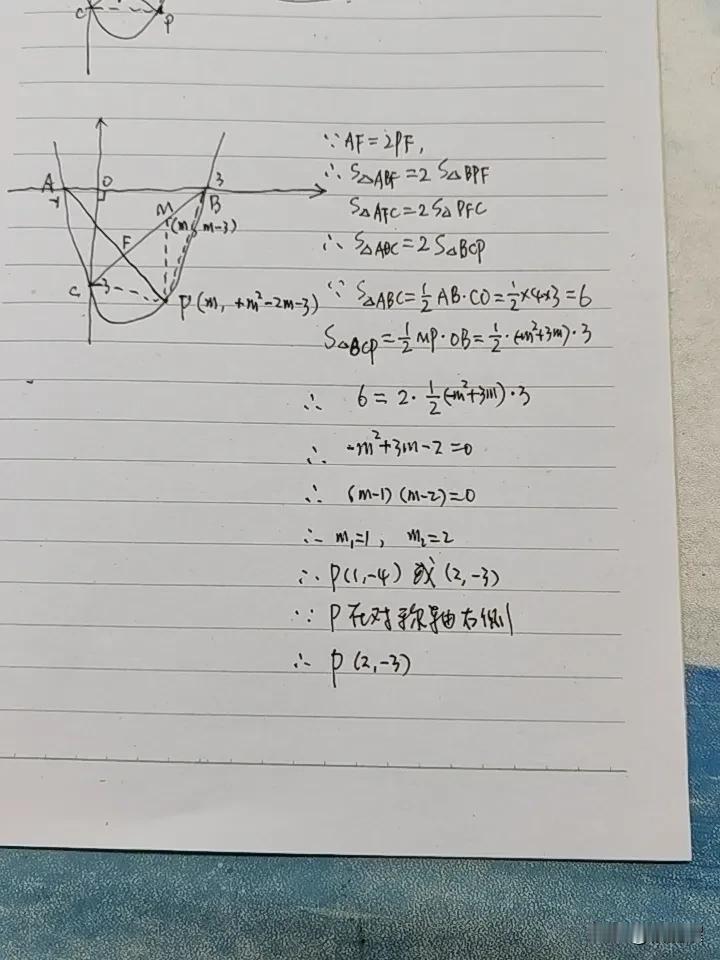 C P
A O 3
-1 M B
(m, m-3)
F
C -3 P(m, +m²-2m-3)
∵ AF=2PF,
∴ S△ABF=2S△BPF
S△AFC=2S△PFC
∴ S△ABC=2S△BCP
∵ S△ABC=½AB·CO=½×4×3=6
S△BCP=½MP·OB=½·(-m²+3m)·3
∴ 6=2·½(-m²+3m)·3
∴ -m²+3m-2=0
∴ (m-1)(m-2)=0
∴ m₁=1, m₂=2
∴ P(1,-4)或(2,-3)
∵ P在对称轴右侧
∴ P(2,-3)